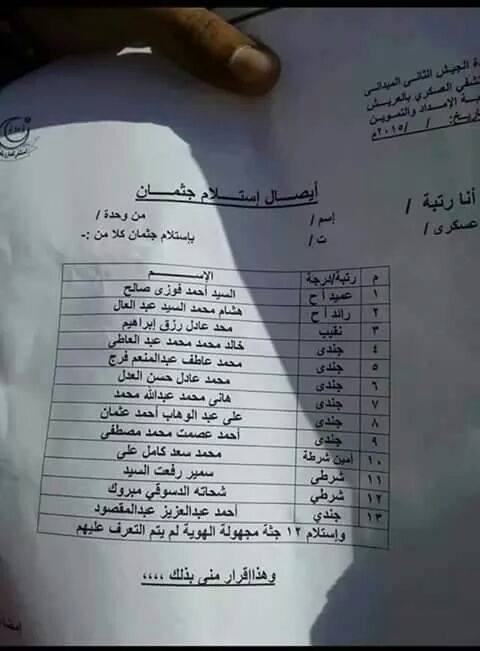 دة الجيش الثانى الميدانى
شفى العسكري بالعريش
بة الإمداد والتموين
ريخ: / / ٢٠١٥م
أيصال إستلام جثمان
أنا رتبة / إسم / من وحدة /
عسكرى / ت / بإستلام جثمان كلا من :-
م رتبة/درجة الإسم
١ عميد أ ح السيد أحمد فوزى صالح
٢ رائد أ ح هشام محمد السيد عبد العال
٣ نقيب محد عادل رزق إبراهيم
٤ جندى خالد محمد محمد عبد العاطى
٥ جندى محمد عاطف عبدالمنعم فرج
٦ جندى محمد عادل حسن العدل
٧ جندى هانى محمد عبدالله محمد
٨ جندى على عبد الوهاب أحمد عثمان
٩ جندى أحمد عصمت محمد مصطفى
١٠ أمين شرطة محمد سعد كامل على
١١ شرطي سمير رفعت السيد
١٢ شرطي شحاته الدسوقي مبروك
١٣ جندي أحمد عبدالعزيز عبدالمقصود
وإستلام ١٢ جثة مجهولة الهوية لم يتم التعرف عليهم
وهذاإقرار منى بذلك ،،،،
إمضا